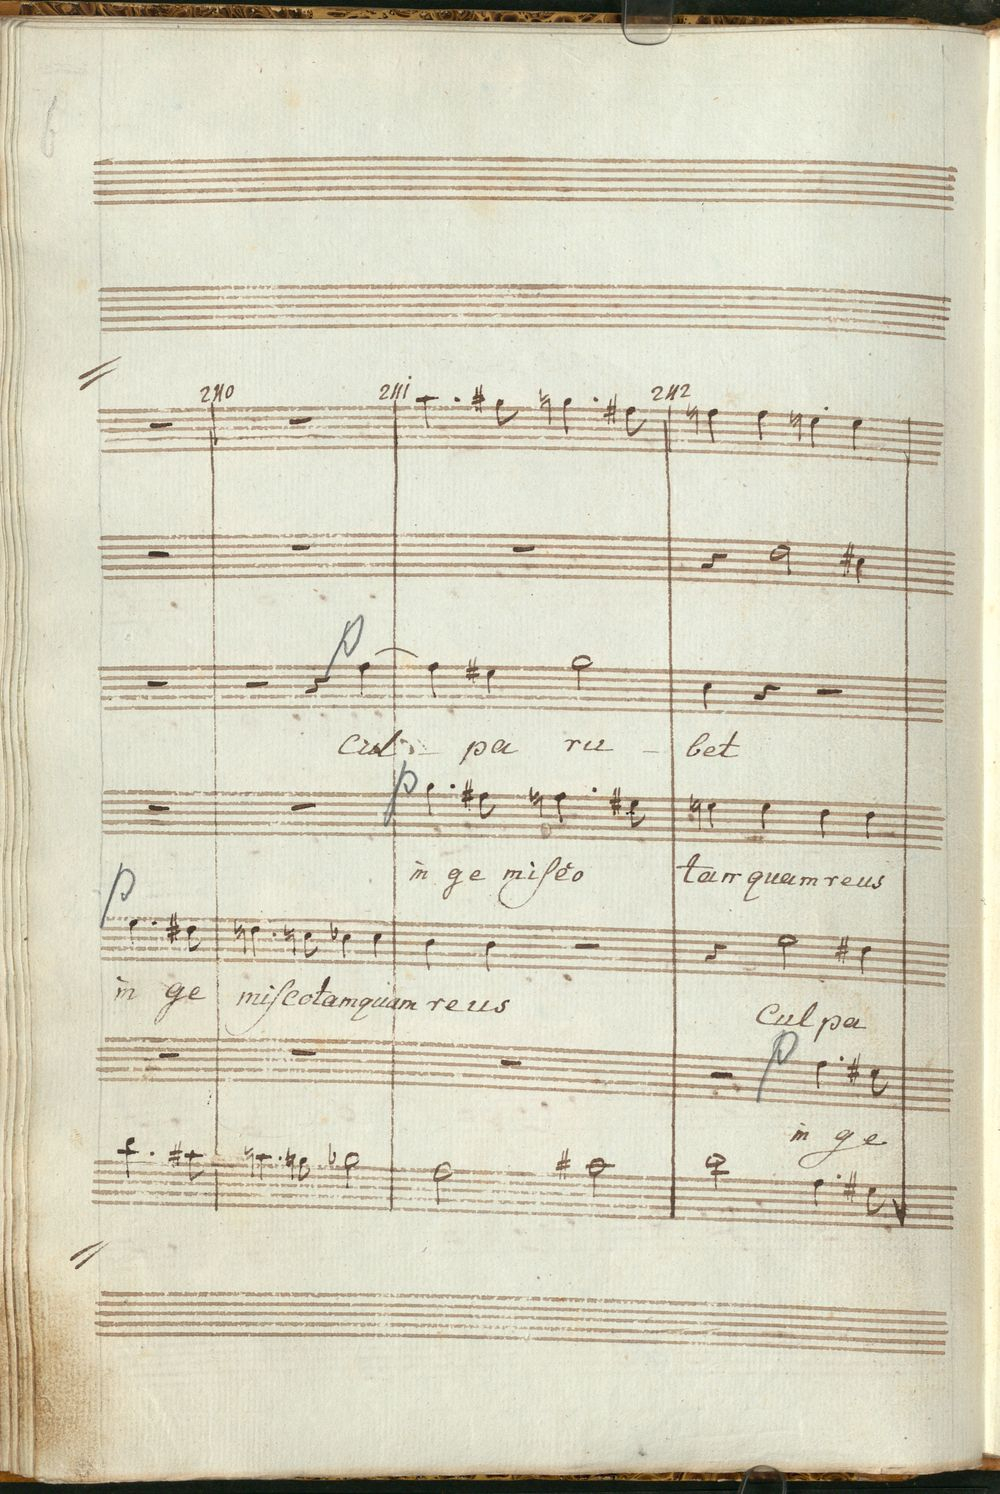 6
240 241 242
p
Cul - pa ru - bet
p
in ge miſéo tam quam reus
p
in ge miſcotamquam reus
Culpa
p
in ge